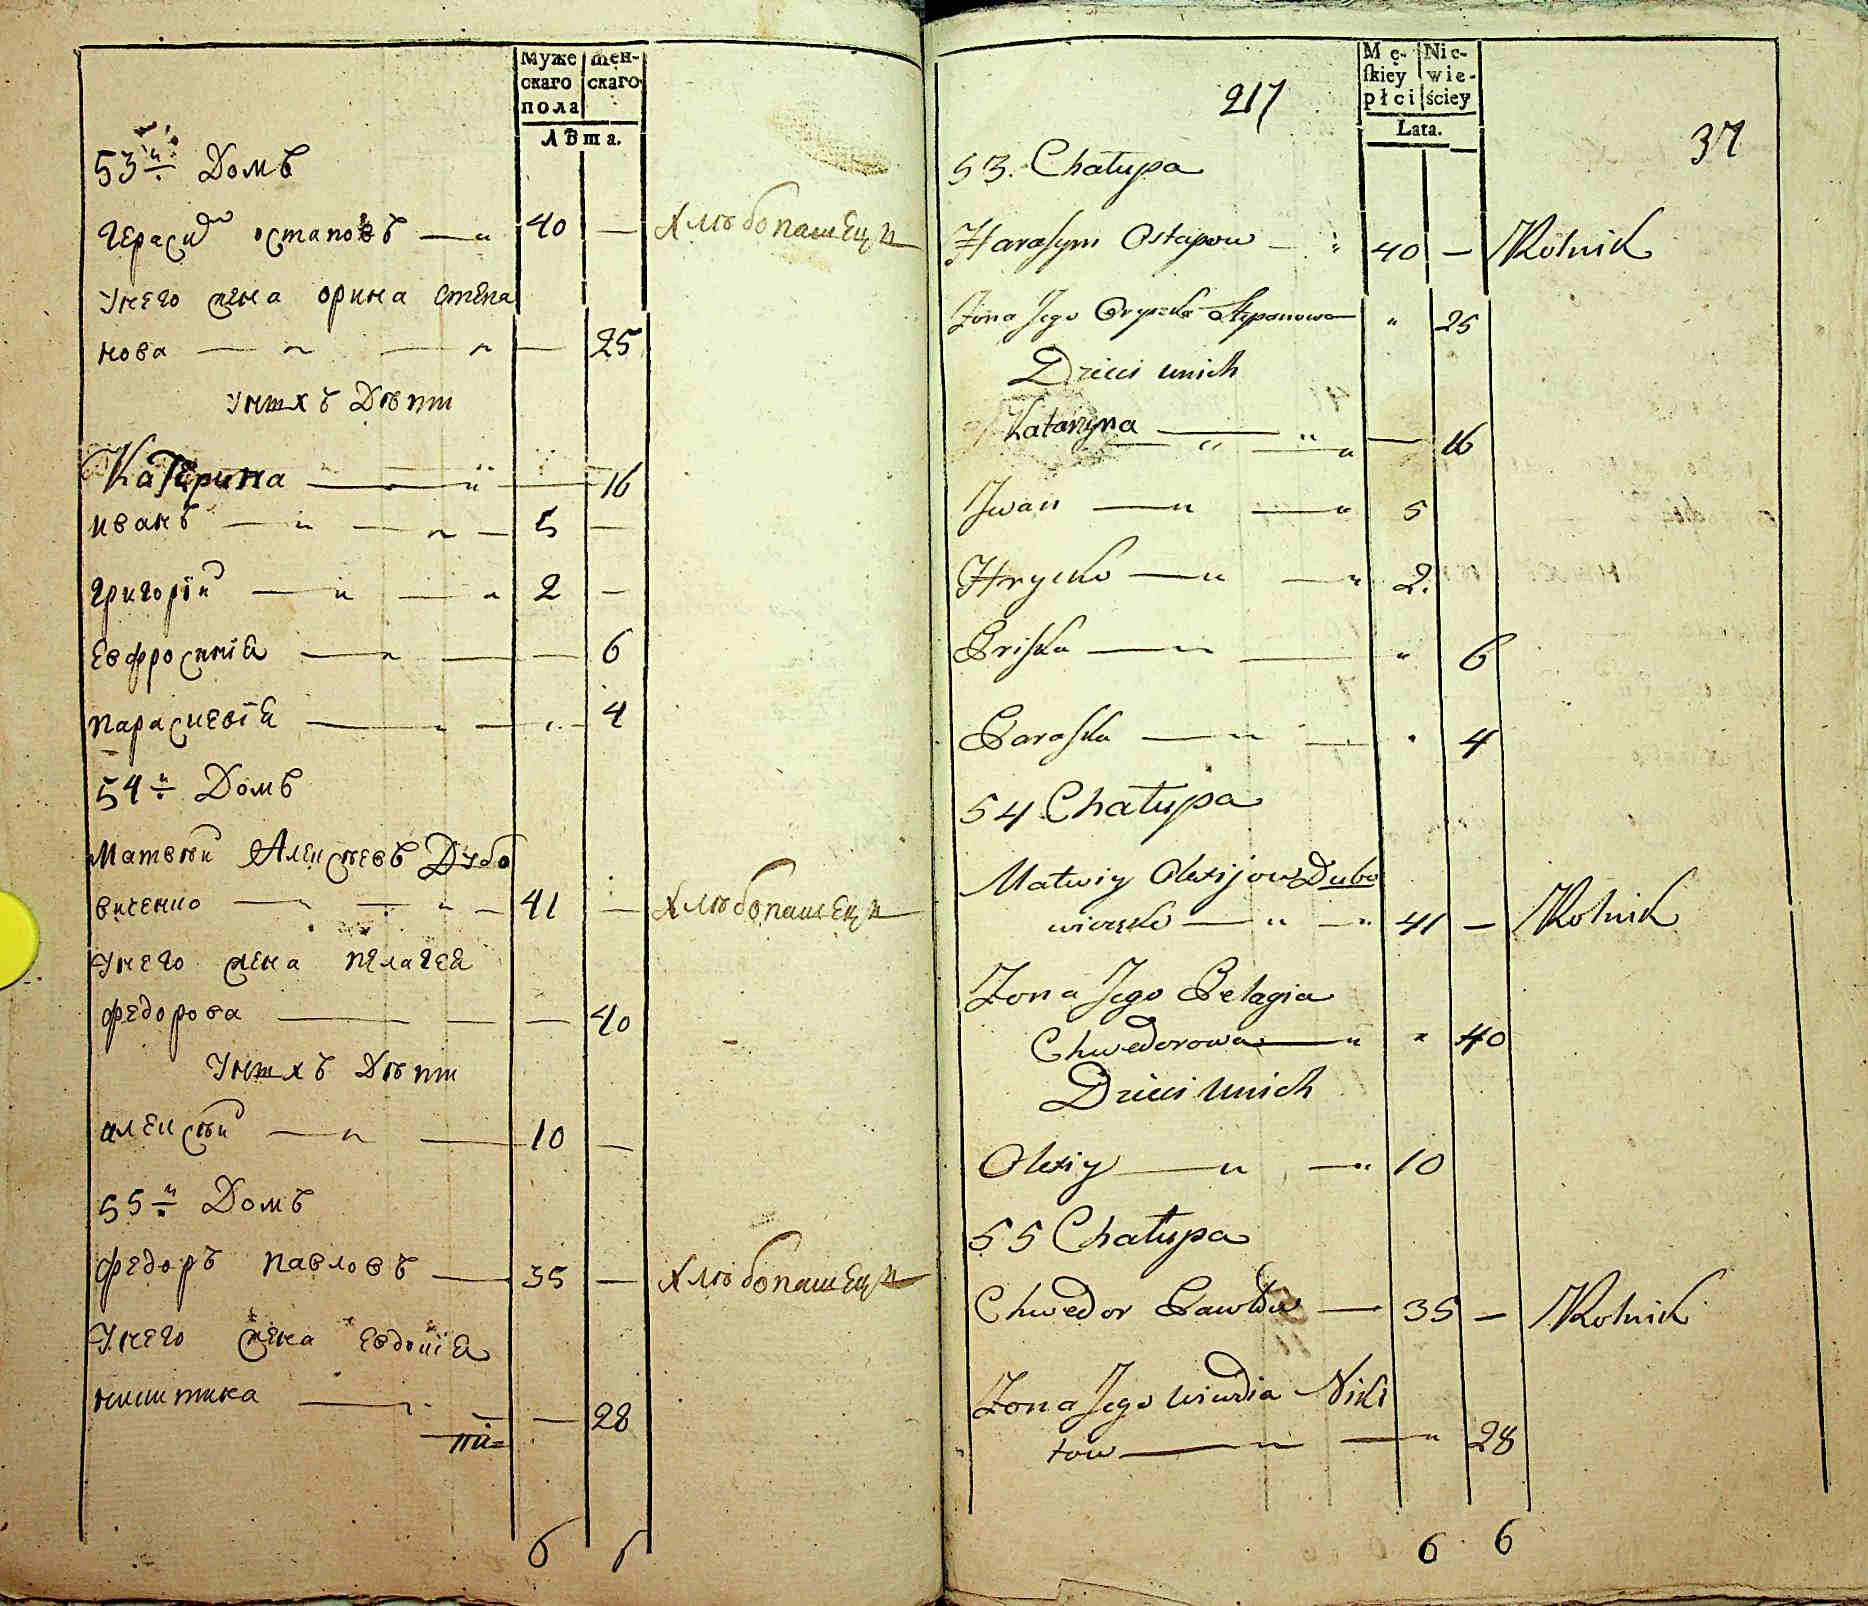 Муже
скаго
пола
жен-
скаго
Лѣта.
53й Домъ
Герасим остаповъ 40 — хлѣбопашецъ
Унего жена орина степа
нова — 25
Унихъ Дѣти
Катерина — 16
иванъ 5 —
григорїи 2 —
Евфросинїя — 6
параскевїя — 4
54й Домъ
Матвѣи Алексѣевъ Дубо
виченко 41 — хлѣбопашецъ
Унего жена пелагея
федорова — 40
Унихъ Дѣти
алексѣи 10 —
55й Домъ
федоръ павловъ 35 — хлѣбопашецъ
Унего жена евдокїя
никитина — 28
6
217
37
Mę-
skiey
płci
Nie-
wie-
ściey
Lata.
53. Chałupa
Harasym Ostapow 40 — Rolnik
Żona Jego Oryszka Steponowa " 25
Dzieci unich
Katarzyna — 16
Jwan 5
Hrycko 2.
Priska " 6
Paraska " 4
54 Chałupa
Matwiy Olexijow Dubo
wiczęko 41 — Rolnik
Żona Jego Pelagia
Chwedorowa " 40
Dzieci Unich
Olexiy 10
55 Chałupa
Chwedor Pawłow 35 — Rolnik
Żona Jego Wiwdia Niki
tow 28
6 6